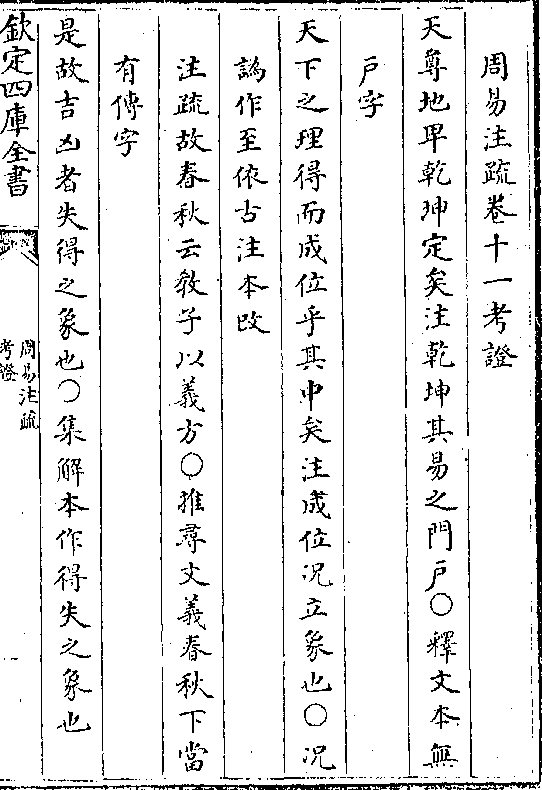 周易注疏卷十一考證
天尊地卑乾坤定矣注乾坤其易之門戶○釋文本無
戶字
天下之理得而成位乎其中矣注成位况立象也○况
譌作至依古注本改
注疏故春秋云教子以義方○推尋文義春秋下當
有傳字
是故吉凶者失得之象也○集解本作得失之象也
欽定四庫全書
周易注疏
考證